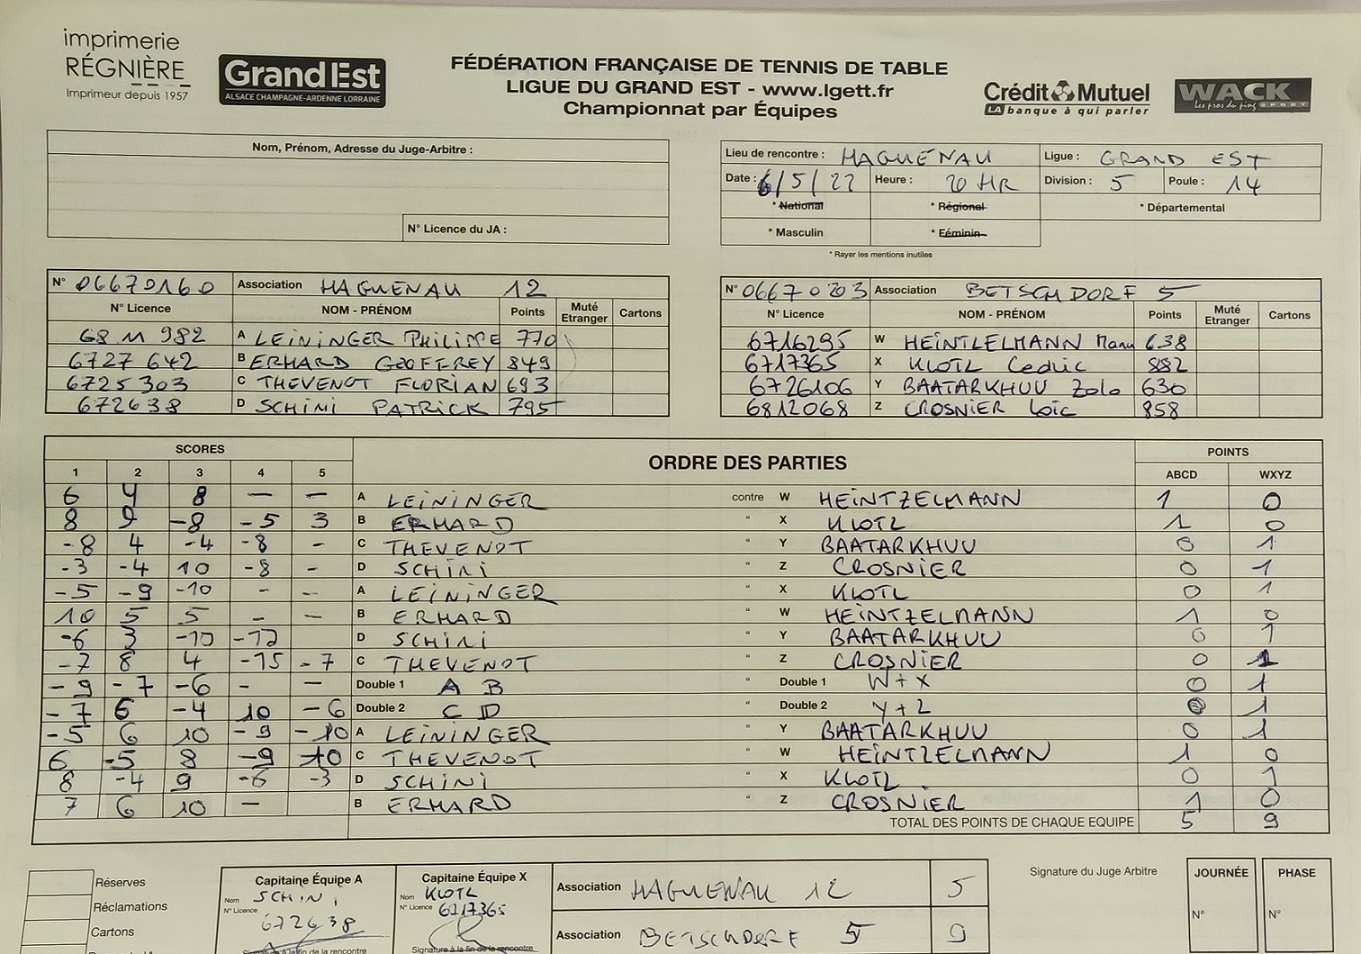 imprimerie
RÉGNIÈRE
Imprimeur depuis 1957
Grand Est
ALSACE CHAMPAGNE-ARDENNE LORRAINE
FÉDÉRATION FRANÇAISE DE TENNIS DE TABLE
LIGUE DU GRAND EST - www.lgett.fr
Championnat par Équipes
Crédit Mutuel
LA banque à qui parler
WACK
Les pros du ping SPORT
Nom, Prénom, Adresse du Juge-Arbitre :
N° Licence du JA :
Lieu de rencontre : HAGUENAU Ligue : GRAND EST
Date : 6/5/22 Heure : 20 HR Division : 5 Poule : 14
* National * Régional * Départemental
* Masculin * Féminin
* Rayer les mentions inutiles
N° 06670160 Association HAGUENAU 12
N° Licence NOM - PRÉNOM Points Muté Etranger Cartons
68 11 982 A LEININGER PHILIPPE 770
6727 642 B ERHARD GEOFFREY 849
6725 303 C THEVENOT FLORIAN 693
672638 D SCHINI PATRICK 795
N° 06670203 Association BETSCHDORF 5
N° Licence NOM - PRÉNOM Points Muté Etranger Cartons
6716295 W HEINTZELMANN Manu 638
6717365 X KLOTZ Cedric 882
6726106 Y BAATARKHUU Zolo 630
6812068 Z CROSNIER Loïc 858
SCORES ORDRE DES PARTIES POINTS
1 2 3 4 5 ABCD WXYZ
6 4 8 — — A LEININGER contre W HEINTZELMANN 1 0
8 9 -8 -5 3 B ERHARD " X KLOTZ 1 0
-8 4 -4 -8 - C THEVENOT " Y BAATARKHUU 0 1
-3 -4 10 -8 - D SCHINI " Z CROSNIER 0 1
-5 -9 -10 - - A LEININGER " X KLOTZ 0 1
10 5 5 - - B ERHARD " W HEINTZELMANN 1 0
-6 3 -10 -12 D SCHINI " Y BAATARKHUU 0 1
-7 8 4 -15 -7 C THEVENOT " Z CROSNIER 0 1
-9 -7 -6 - — Double 1 A B " Double 1 W+X 0 1
-7 6 -4 10 -6 Double 2 C D " Double 2 Y+Z 0 1
-5 6 10 -9 -10 A LEININGER " Y BAATARKHUU 0 1
6 -5 8 -9 10 C THEVENOT " W HEINTZELMANN 1 0
8 -4 9 -6 -3 D SCHINI " X KLOTZ 0 1
7 6 10 — B ERHARD " Z CROSNIER 1 0
TOTAL DES POINTS DE CHAQUE EQUIPE 5 9
Réserves
Réclamations
Cartons
Capitaine Équipe A
Nom SCHINI
N° Licence 672638
Signature à la fin de la rencontre
Capitaine Équipe X
Nom KLOTZ
N° Licence 6717365
Signature à la fin de la rencontre
Association HAGUENAU 12 5
Association BETSCHDORF 5 9
Signature du Juge Arbitre
JOURNÉE
N°
PHASE
N°